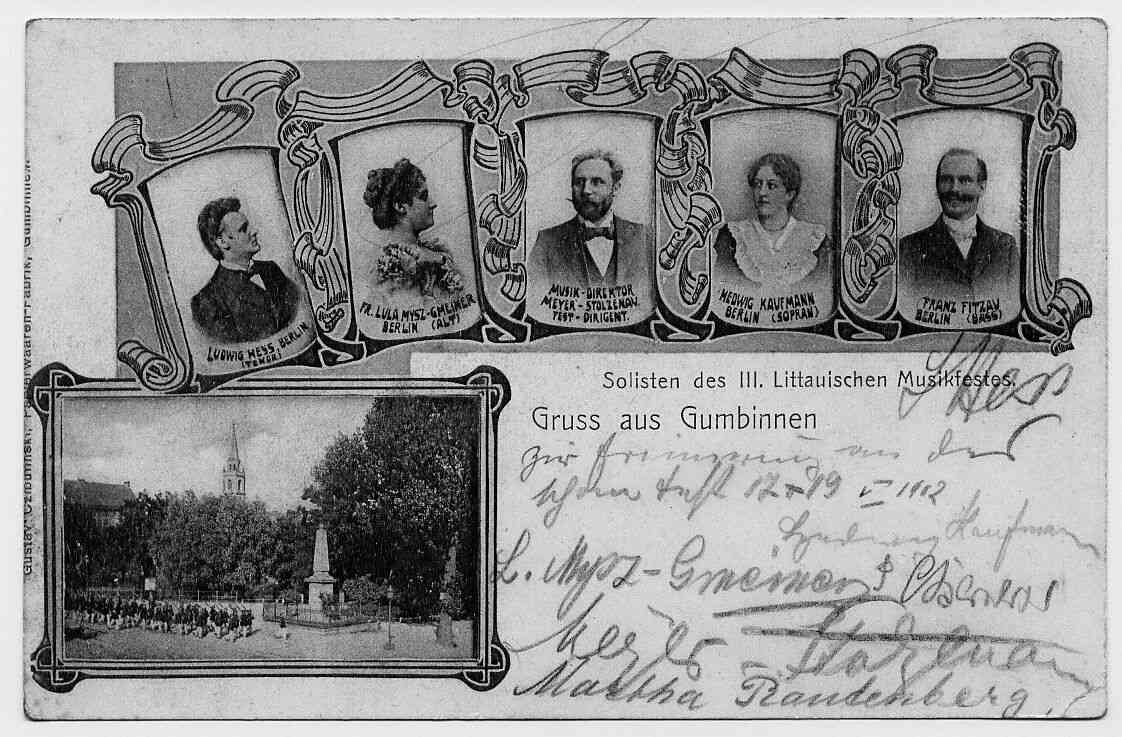 LUDWIG HESS BERLIN
(TENOR)
FR. LULA MYSZ-GMEINER
BERLIN (ALT)
MUSIK-DIREKTOR
MEYER-STOLZENAU.
FEST-DIRIGENT.
HEDWIG KAUFMANN
BERLIN (SOPRAN)
FRANZ FITZAU
BERLIN (BASS)
Solisten des III. Littauischen Musikfestes.
L Hess
Gruss aus Gumbinnen
zur Erinnerung an das
schöne Fest 17+19 V 1902
Hedwig Kaufmann
L. Mysz-Gmeiner
Meyer-Stolzenau
Martha Raudenberg.
Gustav Czibulinski, Papierwaaren-Fabrik, Gumbinnen.